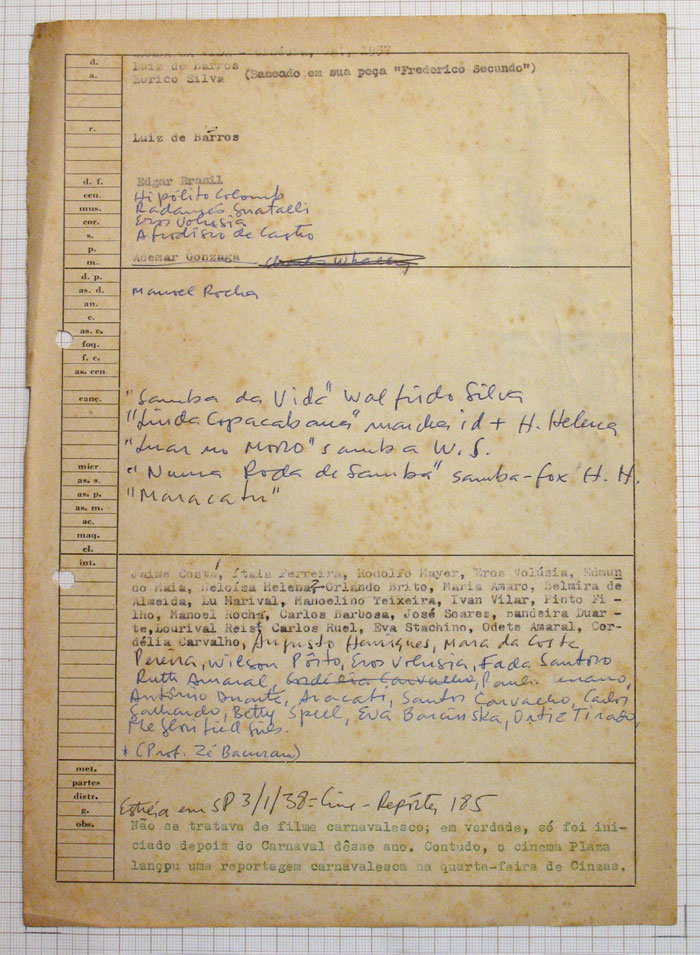 1937
d. Luiz de Barros
a. Eurico Silva (Baseado em sua peça "Frederico Segundo")
r. Luiz de Barros
d. f. Edgar Brasil
cen. Hipólito Colomb
mus. Radamés Gnatalli
cor. Eros Volusia
s. Afrodisio de Castro
p.
m. Ademar Gonzaga
d. p.
as. d. Manoel Rocha
an.
c.
as. c.
fog.
f. c.
as. cen.
canç. "Samba da Vida" Walfrido Silva
"Linda Copacabana" marcha id + H. Helena
"Luar no Morro" samba W.S.
micr "Numa Roda de Samba" samba-fox H. H.
as. s. "Maracatu"
as. p.
as. m.
ac.
maq.
el.
int. Jaime Costa, Ítala Ferreira, Rodolfo Mayer, Eros Volúsia, Edmun
do Maia, Heloísa Helena, Orlando Brito, Maria Amaro, Belmira de
Almeida, Lu Marival, Manoelino Teixeira, Ivan Vilar, Pinto Fi-
lho, Manoel Rocha, Carlos Barbosa, José Soares, Bandeira Duar-
te, Lourival Reis, Carlos Ruel, Eva Stachino, Odete Amaral, Cor-
délia Carvalho, Augusto Henriques, Mara da Costa
Pereira, Wilson Pôrto, Eros Volusia, Fada Santoro
Ruth Amaral, Cordélia Carvalho, Paulo
Antônio Duarte, Aracati, Santos Carvalho, Carlos
Galhardo, Betty Spell, Eva Barcinska, Ortiz Tirado,
* (Prof. Zé Bacurau)
met.
partes
distr.
g. Estréia em SP 3/1/38 = Cine-Repórter 185
obs. Não se tratava de filme carnavalesco; em verdade, só foi ini-
ciado depois do Carnaval dêsse ano. Contudo, o cinema Plaza
lançpu uma reportagem carnavalesca na quarta-feira de Cinzas.